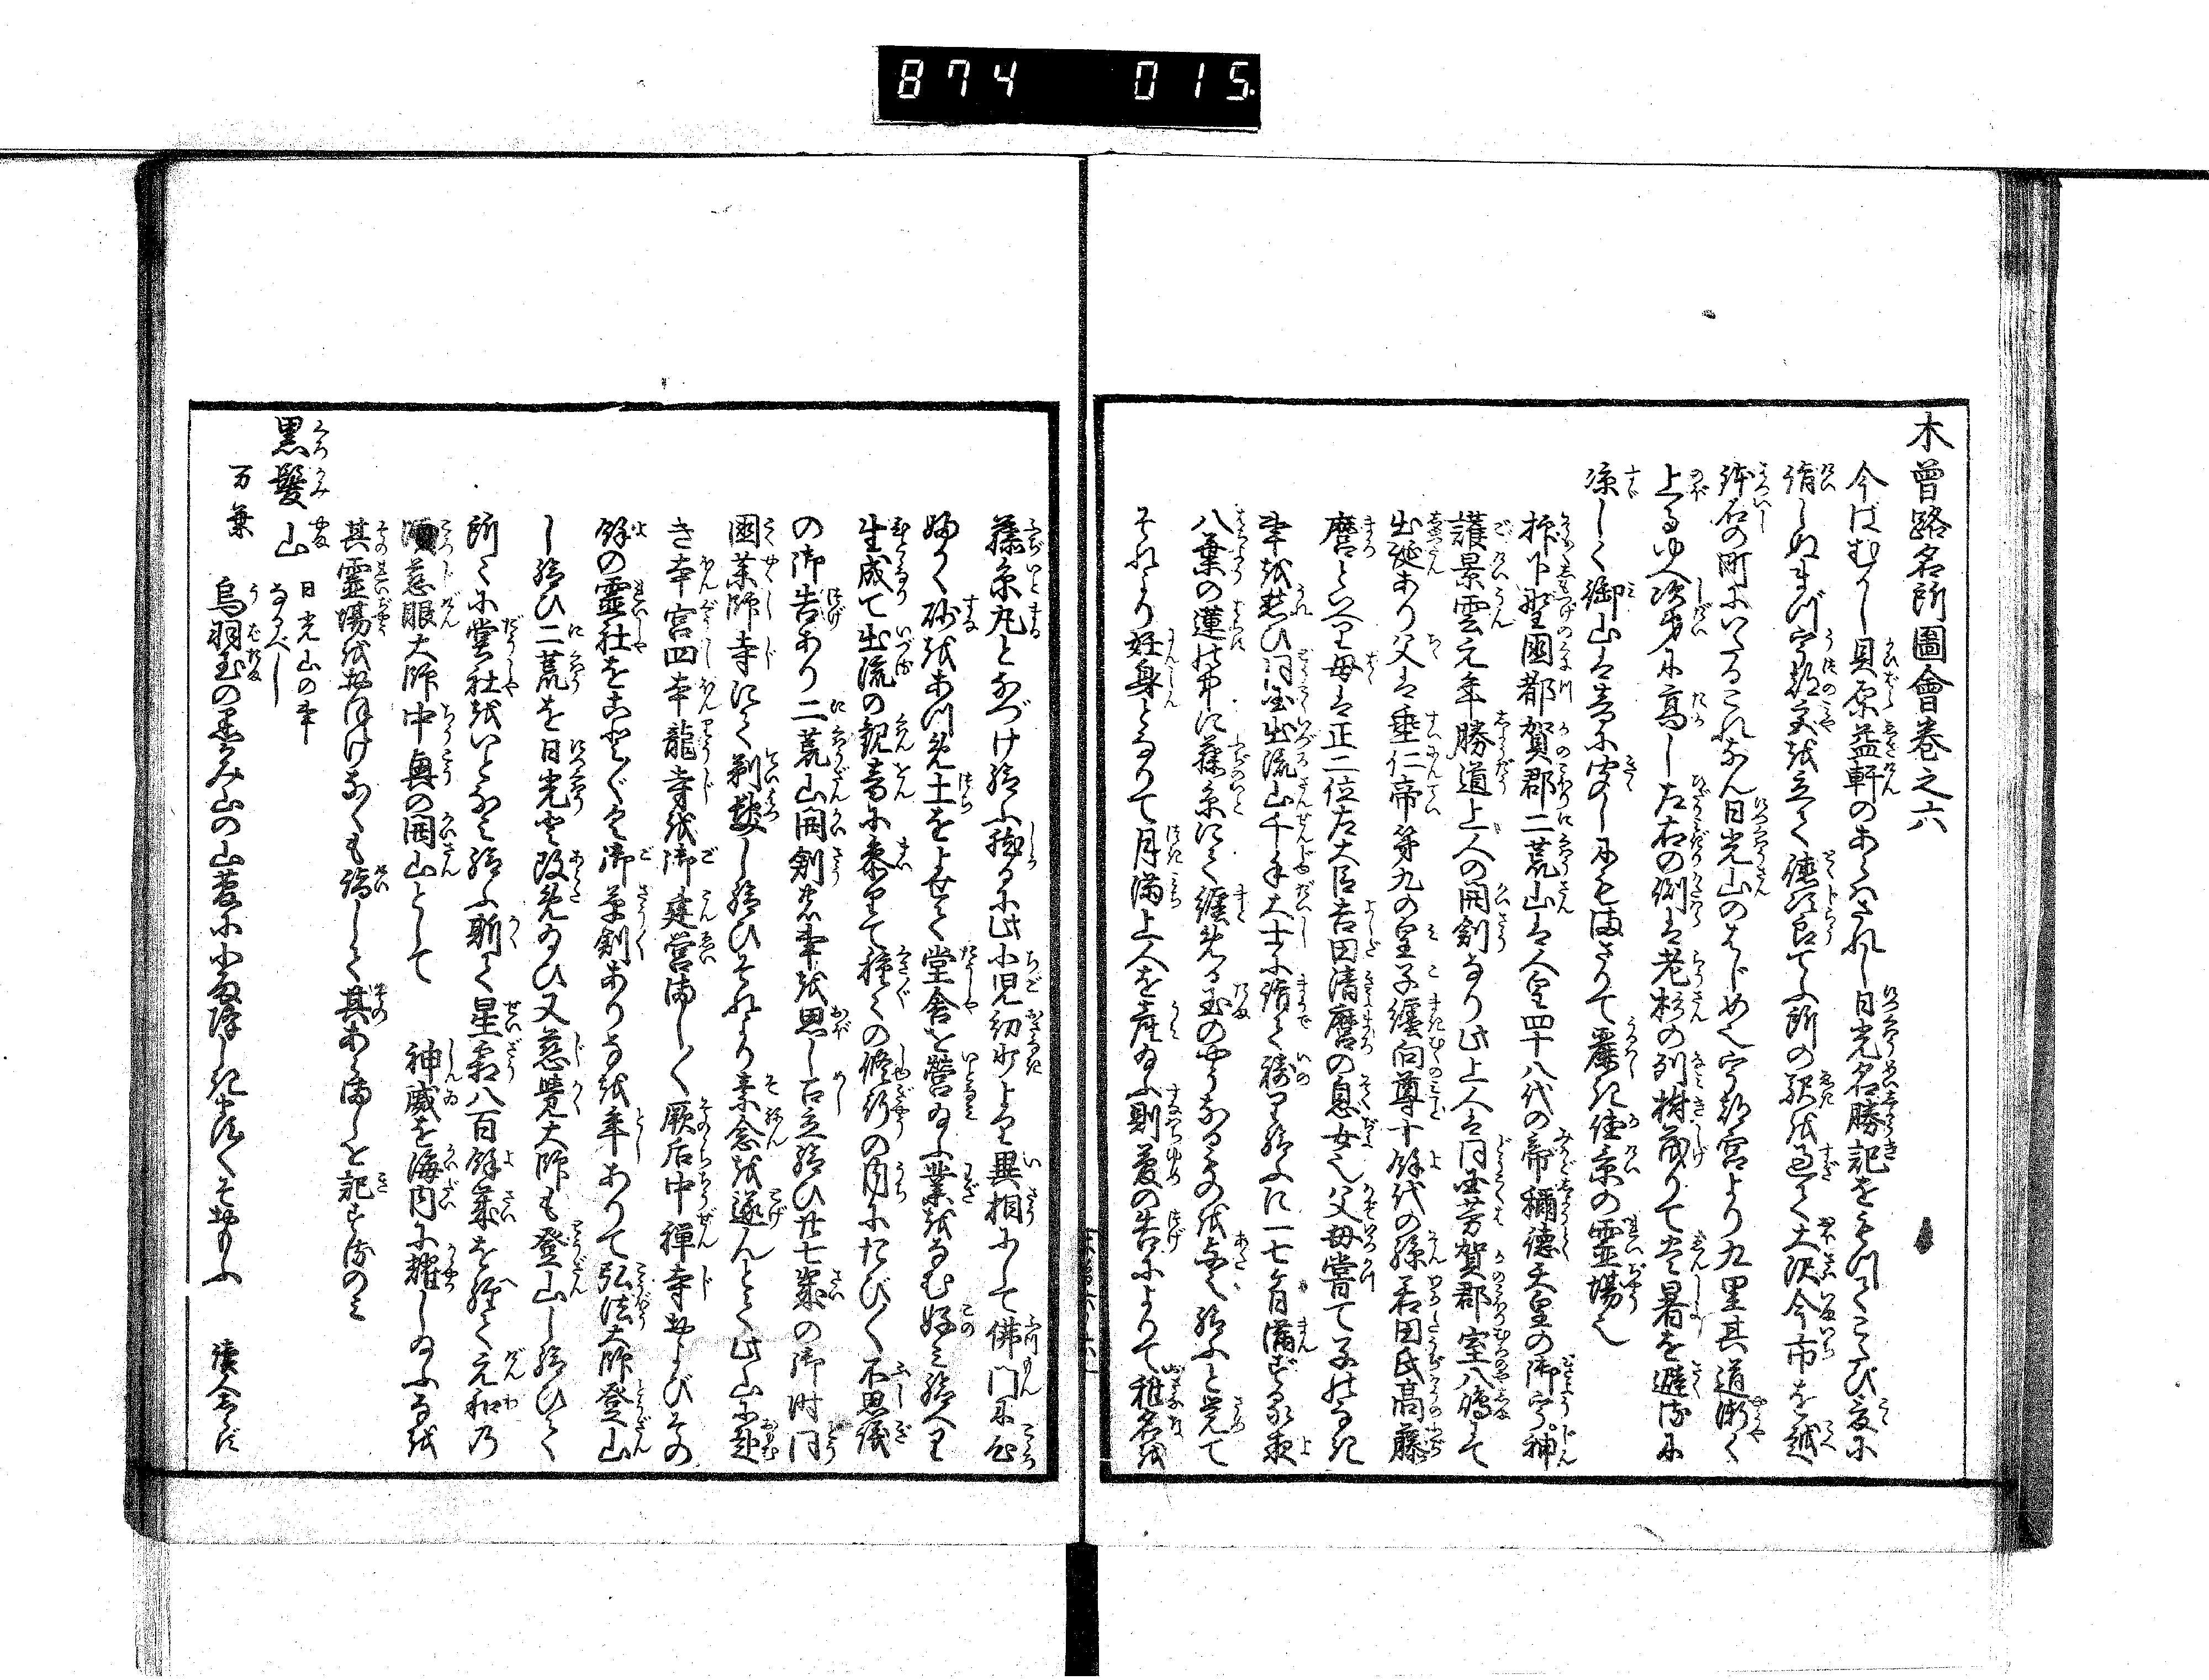 874 015
木曽路名所圖會巻之六
今ばむかし貝原益軒のあらはされし日光名勝記をもつてこゝび爰に
詣しぬまづ宇都宮を立て徳次良てふ所の駅を過て大沢今市を越
鉢石の町にいたるこれなん日光山のはじめ也宇都宮より九里其道漸く
上るゆへ次第に高し左右の側は老杉の列樹茂りて炎暑を避るに
涼しく御山は昔に聞しにも満さりて麗き佳景の霊場也
抑下野國都賀郡二荒山は人皇四十八代の帝稱德天皇の御宇神
護景雲元年勝道上人の開創なり此上人は同国芳賀郡室八嶋にて
出誕あり父は垂仁帝第九の皇子纏向尊十餘代の孫若田氏高藤
麿といへり母は正二位左大臣吉田清麿の息女也父母嘗て子のなき
事を愁ひ同国出流山千手大士に詣て祷り給ふに一七ヶ日満ずる夜
八葉の蓮の中に藤糸にて纏める玉のやうなるものを與へ給ふと覚て
それより妊身となりて月満上人を産給ふ則夢の告によりて稚名を
藤糸丸となづけ給ふ稚るに此小児幼少より異相にして佛門に心
婦かく砂をあつめ土をよせて堂舎を營給ふ業をなむ好み給へり
生成て出流の観音に参りて種々の修行の内にたび〳〵不思議
の御告あり二荒山開創の事を思し召立給ひ廿七歳の御時同
國薬師寺にて剃髪し給ひそれより素念を遂んとて此山に赴
き本宮四本龍寺を御建営満しく厥后中禅寺およびその
餘の霊社をことごとく御草創ありしを年ありて弘法大師登山
し給ひ二荒を日光と改め給ひ又慈覚大師も登山し給ひて
所々に堂社をいとなみ給ふ斯て星霜八百餘歳を經て元和乃
頃慈眼大師中興の開山として　神威を海内に耀し給ふるを
其霊場をおほけなくも詣して其あらましを記するのみ
黒髪山
日光山の事
なるべし
万葉
烏羽玉の黒かみ山の山菅に小雨降しきます〳〵そおもふ　讀人しらず